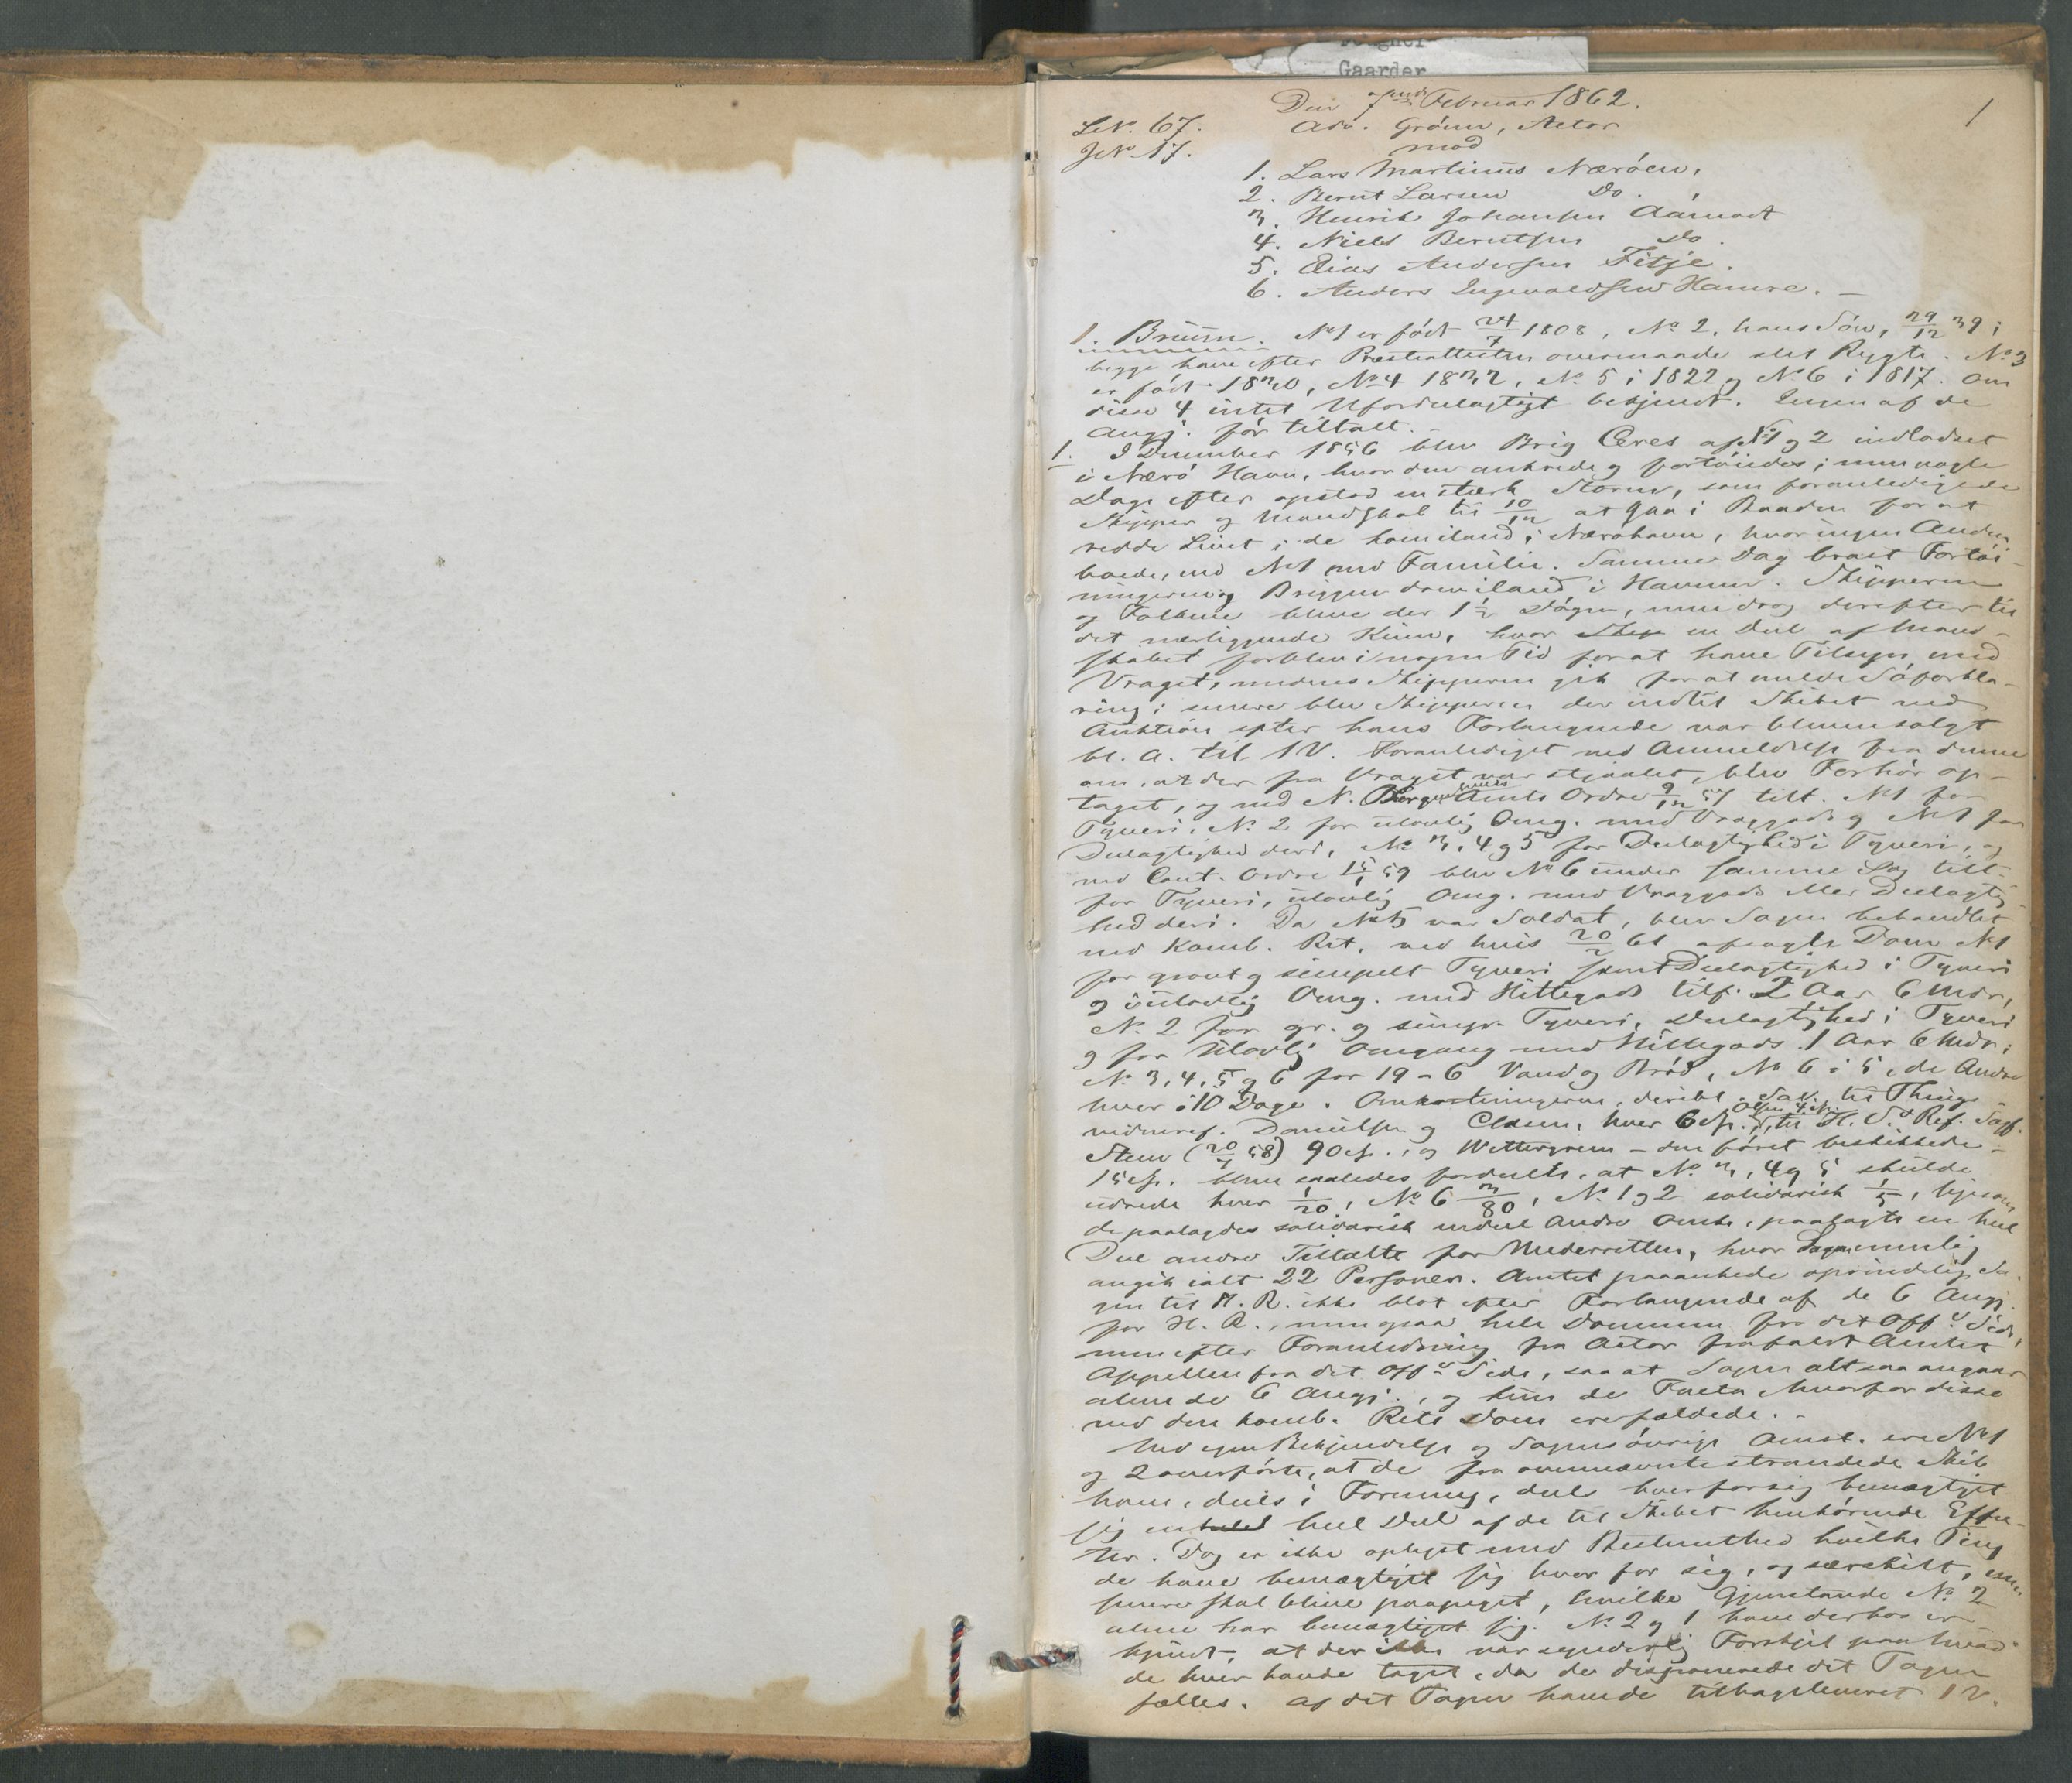 Gaarder
1
Den 7de Februar 1862.
LNo. 67.
Adv. Grönn, Actor
JNo 17.
mod
1. Lars Martinus Neröen,
2. Bernt Larsen Do.,
3. Henrik Johansen Aarnœs
4. Niels Berntsen Do.
5. Elias Andersen Fitje.
6. Anders Ingevaldsen Hamre. -
1. Bruun. No 1 er född 24/7 1808, No 2, hans Sön, 29/12 39;
begge have efter Præsteattesten overmaade slet Rygte. No 3
er född 1830, No 4 1832, No 5 i 1822 og No 6 i 1817. Om
disse 4 intet Ufordelagtigt bekjendt. Ingen af de
Angj. för tiltalt. -
1. I December 1856 blev Brig Ceres af No 1 og 2 indlodset
i Nærö Havn, hvor den ankrede og fortöiedes; men nogle
Dage efter opstod en stærk Storm, som foranledigede
Skipper og Mandskab til 10/12 at gaa i Baaden for at
redde Livet; de kom iland i Neröhavn, hvor ingen Anden
boede, end No 1 med Familie. Samme Dag brast Fortöi-
ningerne og Briggen drev iland i Havnen. Skipperen
og Folkene bleve der 1½ Dögn, men drog derefter til
det nærliggende Kinn, hvor en Deel af Mand-
skabet forblev i nogen Tid for at have Tilsyn med
Vraget, medens Skipperen gik for at melde Söforkla-
ring; senere blev Skipperen der indtil Skibet ved
Auktion efter hans Forlangende var bleven solgt
bl. A. til 1 V. Foranlediget ved Anmeldelse fra denne
om, at der fra Vraget var stjaalet, blev Forhör op-
taget, og ved N. Bergenhuus Amts Ordre 9/12 57 tilt. No 1 for
Tyveri, No 2 for ulovlig Omg. med Vraggods og No 1 for
Deelagtighed deri, No 3, 4 og 5 for Deelagtighed i Tyveri, og
ved Const. Ordre 15/1 59 blev No 6 under samme Sag tilt.
for Tyveri, ulovlig Omg. med Vraggods eller Deelagtig-
hed deri. Da No 5 var Soldat, blev Sagen behandlet
ved Komb. Ret, ved hvis 20/2 61 afsagte Dom No 1
for grovt og simpelt Tyveri samt Deelagtighed i Tyveri
og i ulovlig Omg. med Hittegods tilf. 2 Aar 6 Mdr,
No 2 for gr. og simp. Tyveri, Deelagtighed i Tyveri
og for Ulovlig Omgang med Hittegods 1 Aar 6 Mdr;
No 3, 4, 5 og 6 for 19-6 Vand og Bröd, No 6 i 5, de Andre
hver i 10 Dage. Omkostningerne, deribl. Sal. til Things-
vidneref. Danielsen og Clasen, hver 6 Sp., til H. S. & Ref. Sagf.
Steen (20/7 58) 90 Sp., og Wettergreen - den förut beskikkede -
15 Sp. bleve saaledes fordeelte, at No 3, 4 og 5 skulde
udrede hver 1/20, No 6 3/80, No 1 og 2 solidarisk 1/5, ligesom
de paalagdes solidarisk endeel Andre Omk., paalagte en heel
Deel andre Tiltalte for Underretten, hvor Sagen nemlig
angik ialt 22 Personer. Amtet paaankede oprindelig Sa-
gen til H. R. ikke blot efter Forlangende af de 6 Angj.
for H. R., men ogsaa hele Dommen fra det Off.s Side,
men efter Foranledning fra Actor frafaldt Amtet
Appellen fra det Off.s Side, saa at Sagen altsaa angaar
alene de 6 Angj., og kun de Facta hvorfor disse
ved den Komb. Rets Dom ere fældede. -
Ved egen Bekjendelse og Sagens övrige Omst. ere No 1
og 2 overförte, at de fra ovennævnte strandede Skib
have, deels i Forening, deels hver for sig bemægtiget
sig en heel Deel af de til Skibet henhörende Effec-
ter. Dog er ikke oplyst med Bestemthed hvilke Ting
de have bemægtiget sig hver for sig, og særskilt, men
senere skal blive paapeget, hvilke Gjenstande No 2
alene har bemægtiget sig. No 2 og 1 have derhos er-
kjendt, at der ikke var synderlig Forskjel paa hvad
de hver havde taget, da de disponerede det Tagne
fælles. Af det Tagne havde tilbageleveret 1 V.